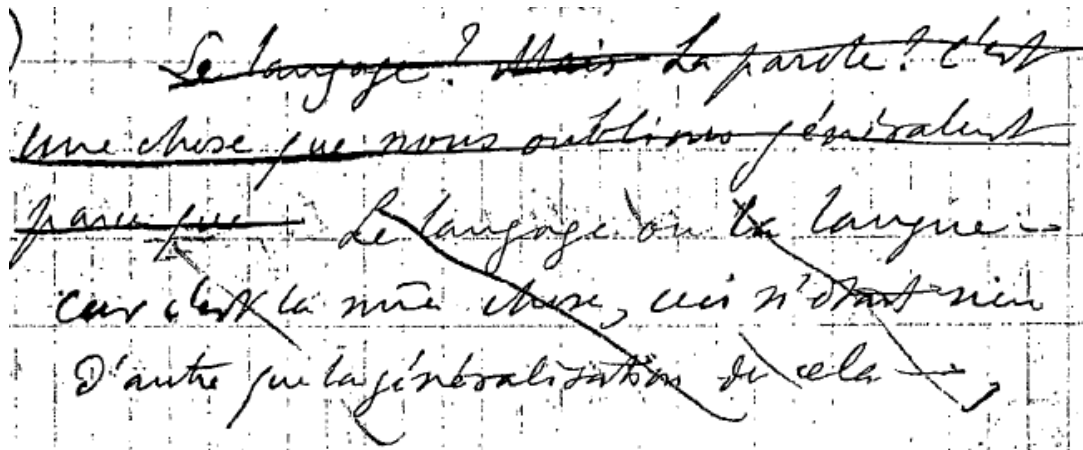 Le langage? Mais La parole? C'est
une chose que nous oublions généralent
parce que Le langage ou la langue –
car c'est la mê chose, ceci n'étant rien
d'autre que la généralisation de cela –,